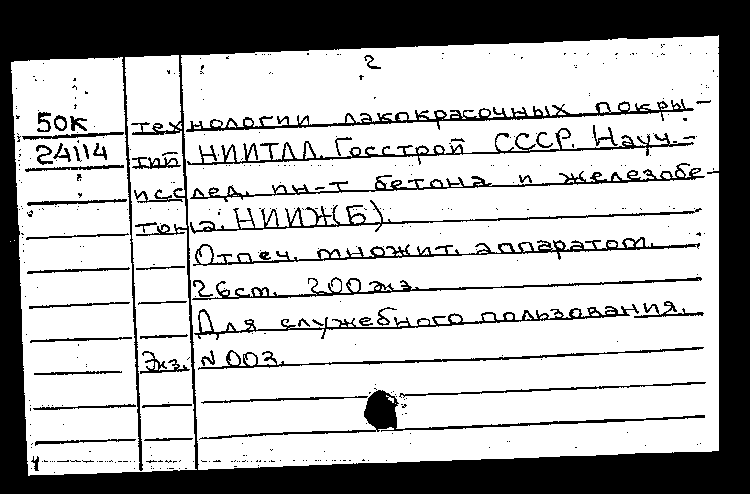 2
50к технологии лакокрасочных покры-
24114 тий НИИТЛП. Госстрой СССР. Науч.-
исслед. ин-т бетона и железобе-
тона. НИИЖБ).
Отпеч. множит. аппаратом.
26 ст. 200 экз.
Для служебного пользования.
Экз. N 003.